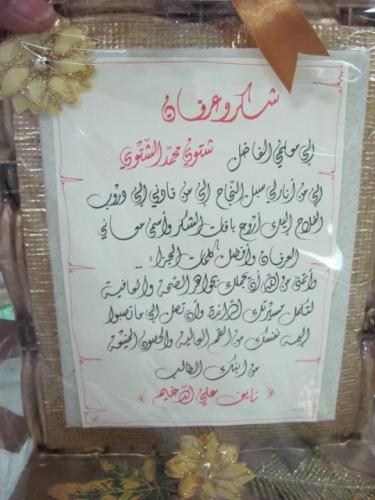 شكر وعرفان
إلى معلمي الفاضل شتوي محمد الشتوي
إلى من أنار لي سبل النجاح إلى من قادني إلى دروب
الفلاح إليك أزوج باقات الشكر وأسمى معاني
العرفان وأفضل كلمات الجزاء..
وأتمنى من الله أن يجملك بجواهر الصحة والعافية
لتكمل مسيرتك الرائدة وأن تصل إلى ما تصبوا
إليه نفسك من القمم العالية والحصون المنيعة
من ابنك الطالب
« نايف علي الدغيم »